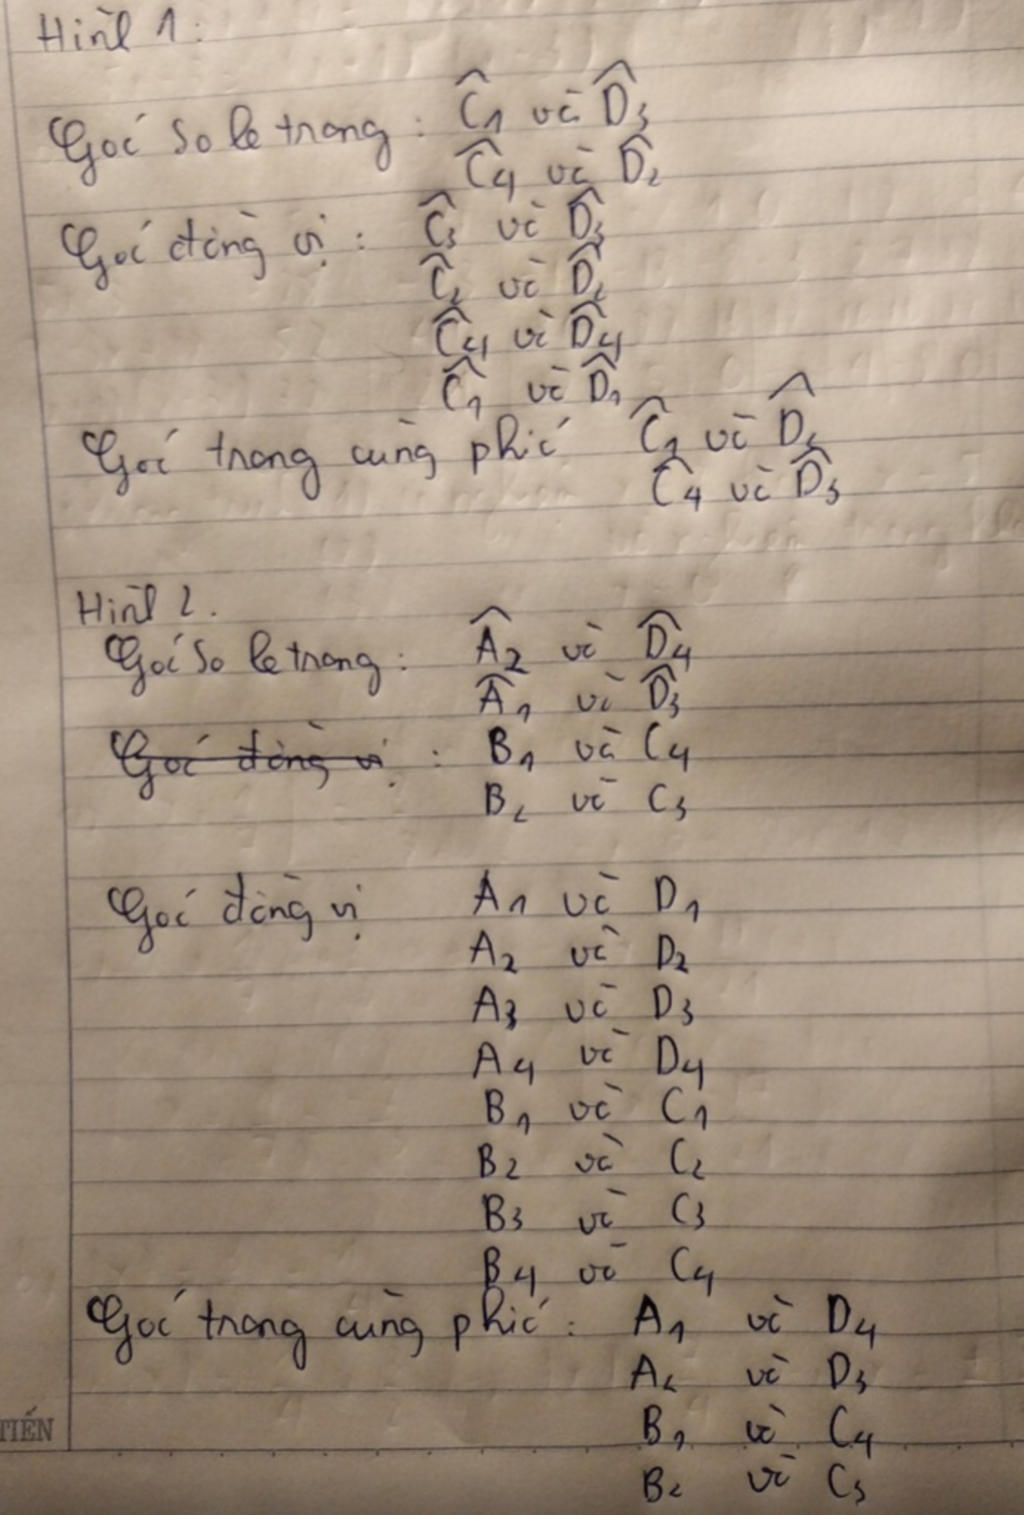 Hình 1:
Góc so le trong: Ĉ1 và D̂3
Ĉ4 và D̂2
Góc đồng vị: Ĉ3 và D̂3
Ĉ2 và D̂2
Ĉ4 và D̂4
Ĉ1 và D̂1
Góc trong cùng phía Ĉ1 và D̂2
Ĉ4 và D̂3
Hình 2.
Góc so le trong: Â2 và D̂4
Â1 và D̂3
Góc đồng vị: B1 và C4
B2 và C3
Góc đồng vị A1 và D1
A2 và D2
A3 và D3
A4 và D4
B1 và C1
B2 và C2
B3 và C3
B4 và C4
Góc trong cùng phía: A1 và D4
A2 và D3
B1 và C4
B2 và C3
TIẾN